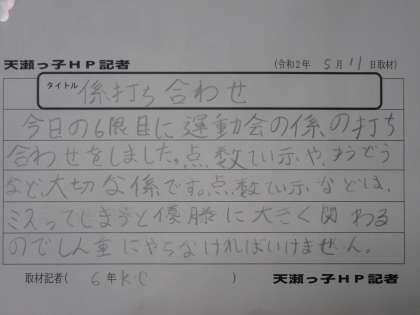 天瀬っ子HP記者 (令和2年 5月11日取材)
タイトル 係打ち合わせ
今日の6限目に運動会の係の打ち
合わせをしました。点数てい示や、ほうそう
など、大切な係です。点数てい示などは、
ミスってしまうと優勝に大きく関わる
のでしん重にやらなければいけません。
取材記者( 6年K.C ) 天瀬っ子HP記者